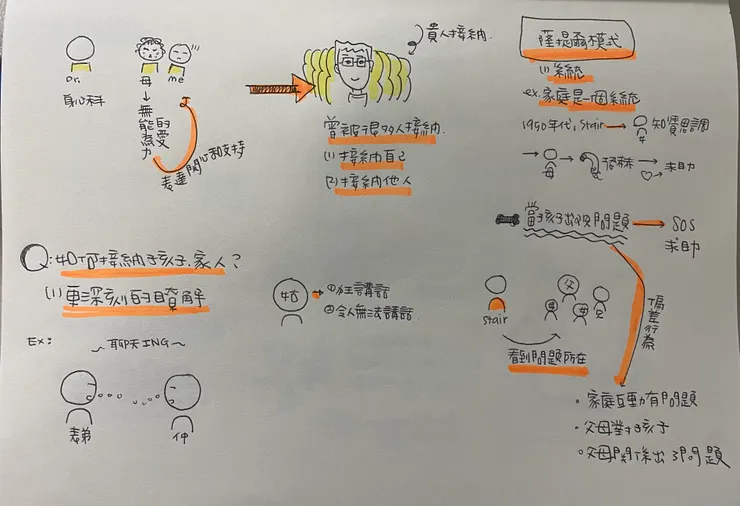 Dr.
身心科
母
me
↓
無能為力的愛
表達關心和支持
貴人接納.
曾被很多人接納.
(1) 接納自己
(2) 接納他人
薩提爾模式
(1) 系統
ex. 家庭是一個系統
1950年代, Stair → 女 知覺思調
→ 母 → → 求助
當孩子出現問題 → SOS
求助
偏差行為
stair
父
母
兄
看到問題所在
• 家庭互動有問題
• 父母對孩子
• 父母關係出了問題
Q: 如何接納孩子.家人?
(1) 更深刻的瞭解
Ex:
~聊天ING~
表弟
仲
姑 → ① 狂講話
② 令人無法講話